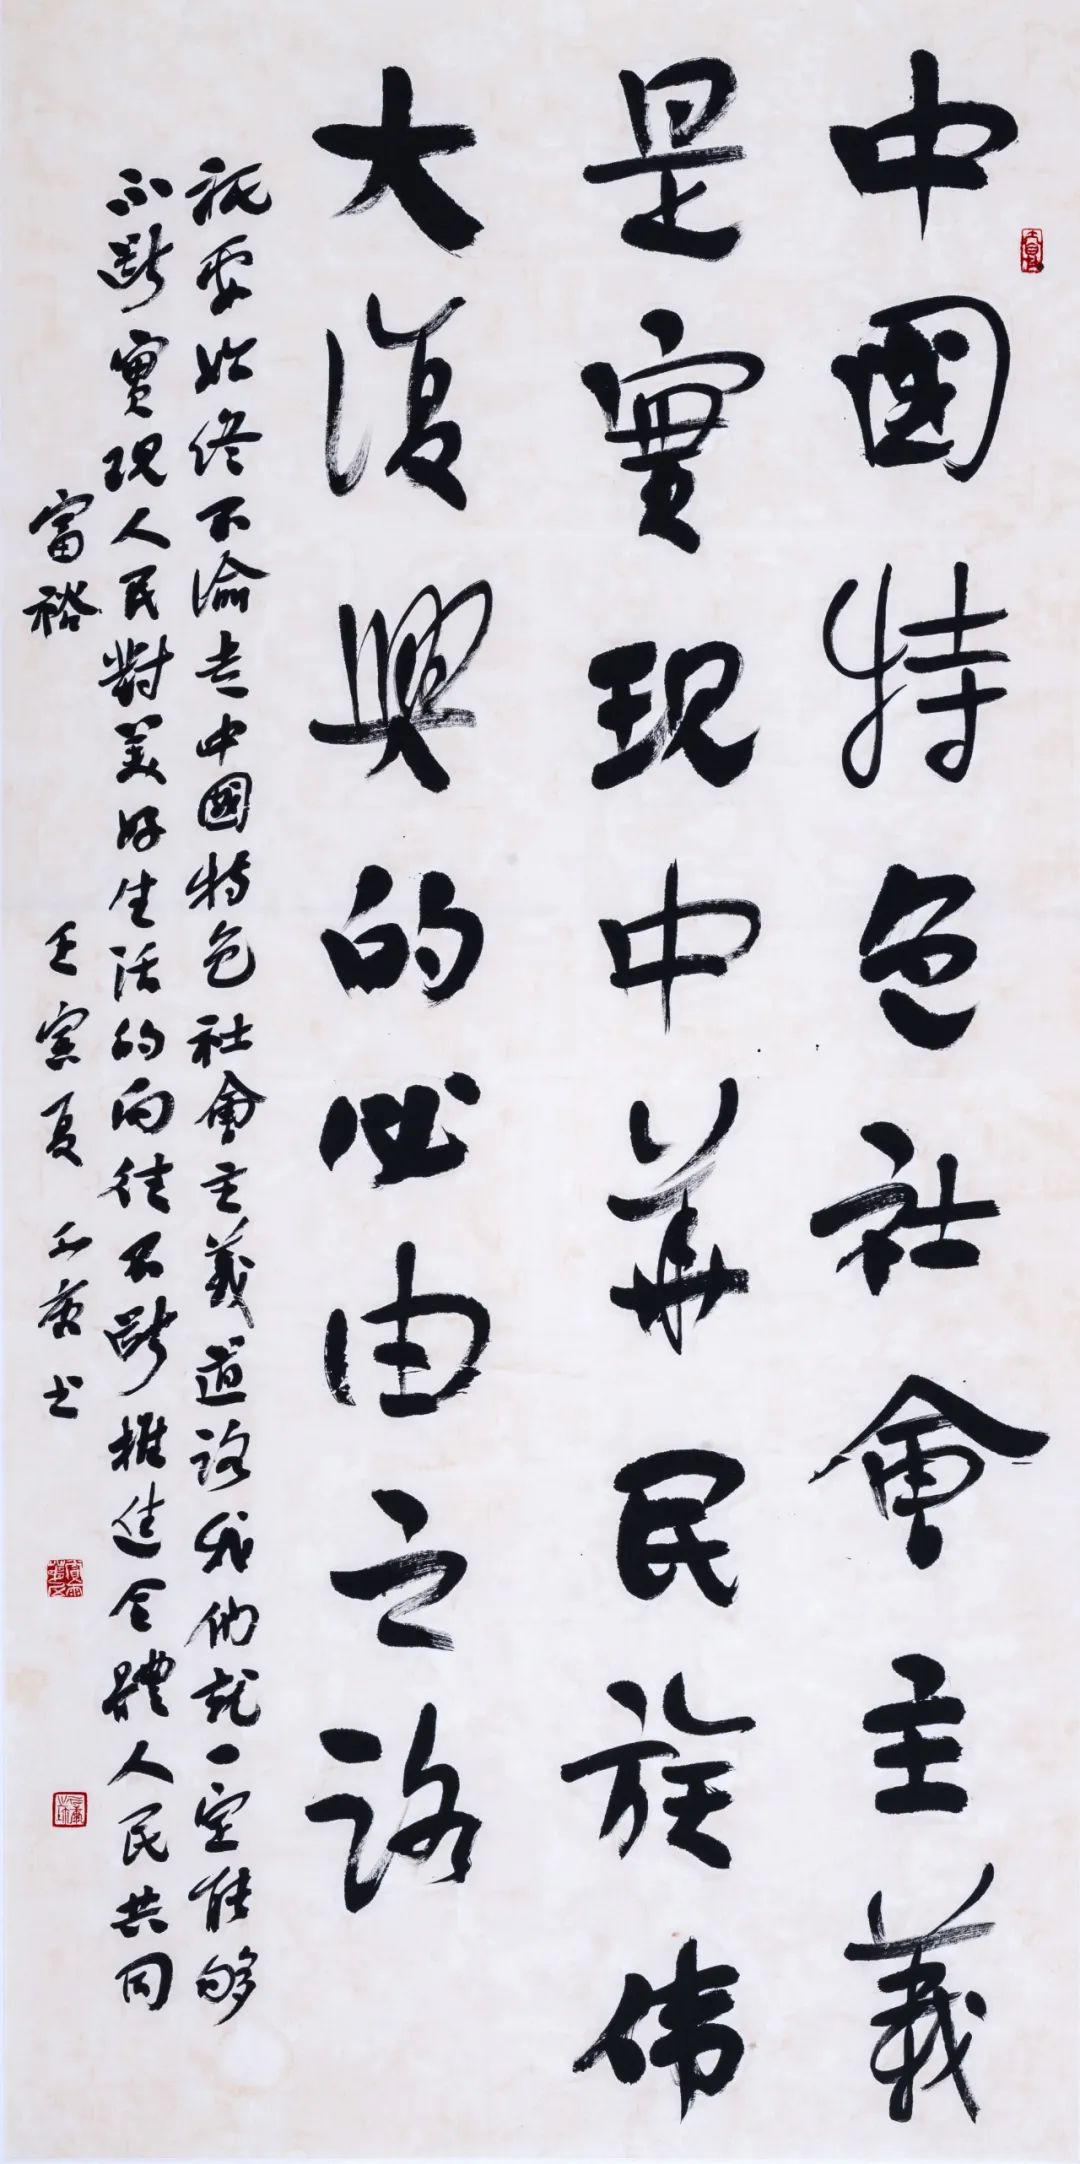 中國特色社會主義
是實現中華民族伟
大復興的必由之路
祇要始終不渝走中國特色社會主義道路我们就一定能够
不斷實現人民對美好生活的向往不斷推進全體人民共同
富裕
壬寅夏 书